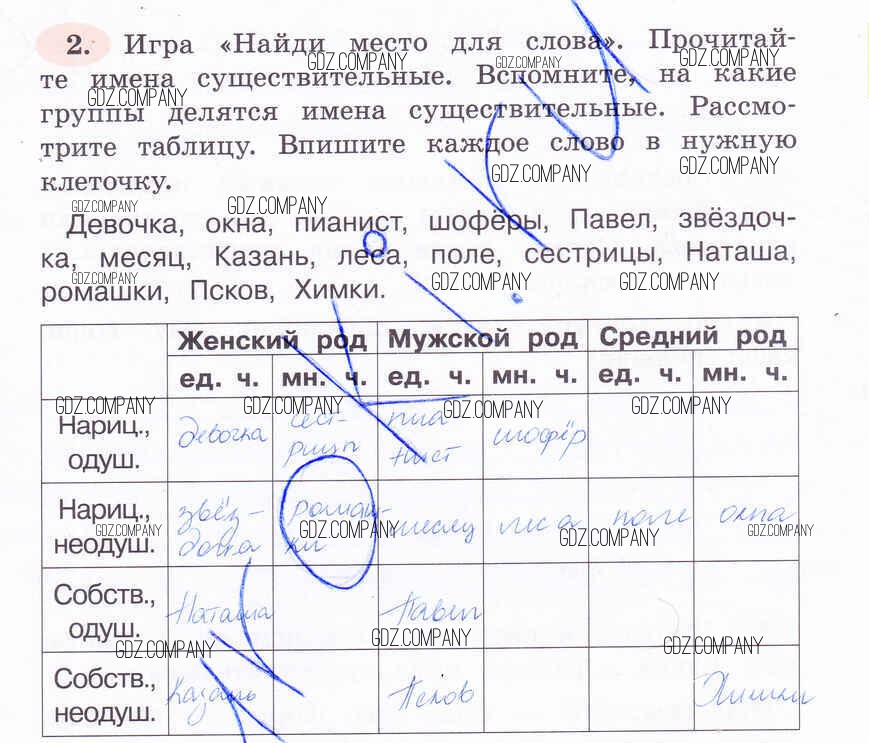 2. Игра «Найди место для слова». Прочитай-
те имена существительные. Вспомните, на какие
группы делятся имена существительные. Рассмо-
трите таблицу. Впишите каждое слово в нужную
клеточку.
Девочка, окна, пианист, шофёры, Павел, звёздоч-
ка, месяц, Казань, леса, поле, сестрицы, Наташа,
ромашки, Псков, Химки.
Женский род Мужской род Средний род
ед. ч. мн. ч. ед. ч. мн. ч. ед. ч. мн. ч.
Нариц., одуш. девочка сест-рицы пианист шофёр
Нариц., неодуш. ромаш-ки месяц леса поле окна
Собств., одуш. Наташа Павел
Собств., неодуш. Казань Псков Химки
GDZ.COMPANY